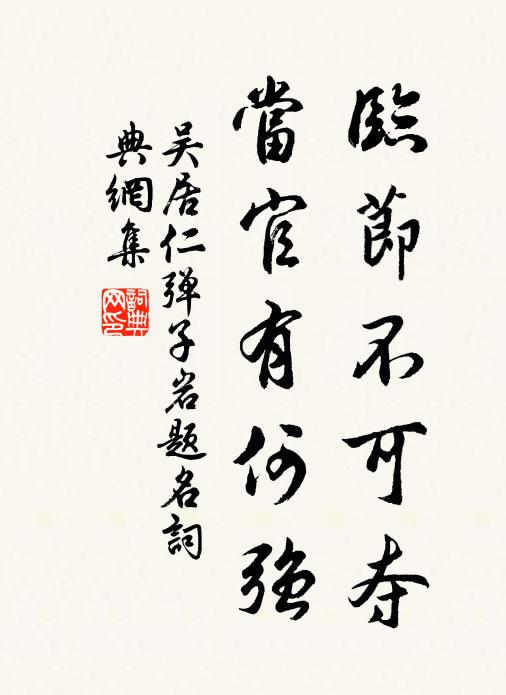 臨節不可夺
當官有何強
吴居仁弹子岩题名詞
典網集
詞典网印